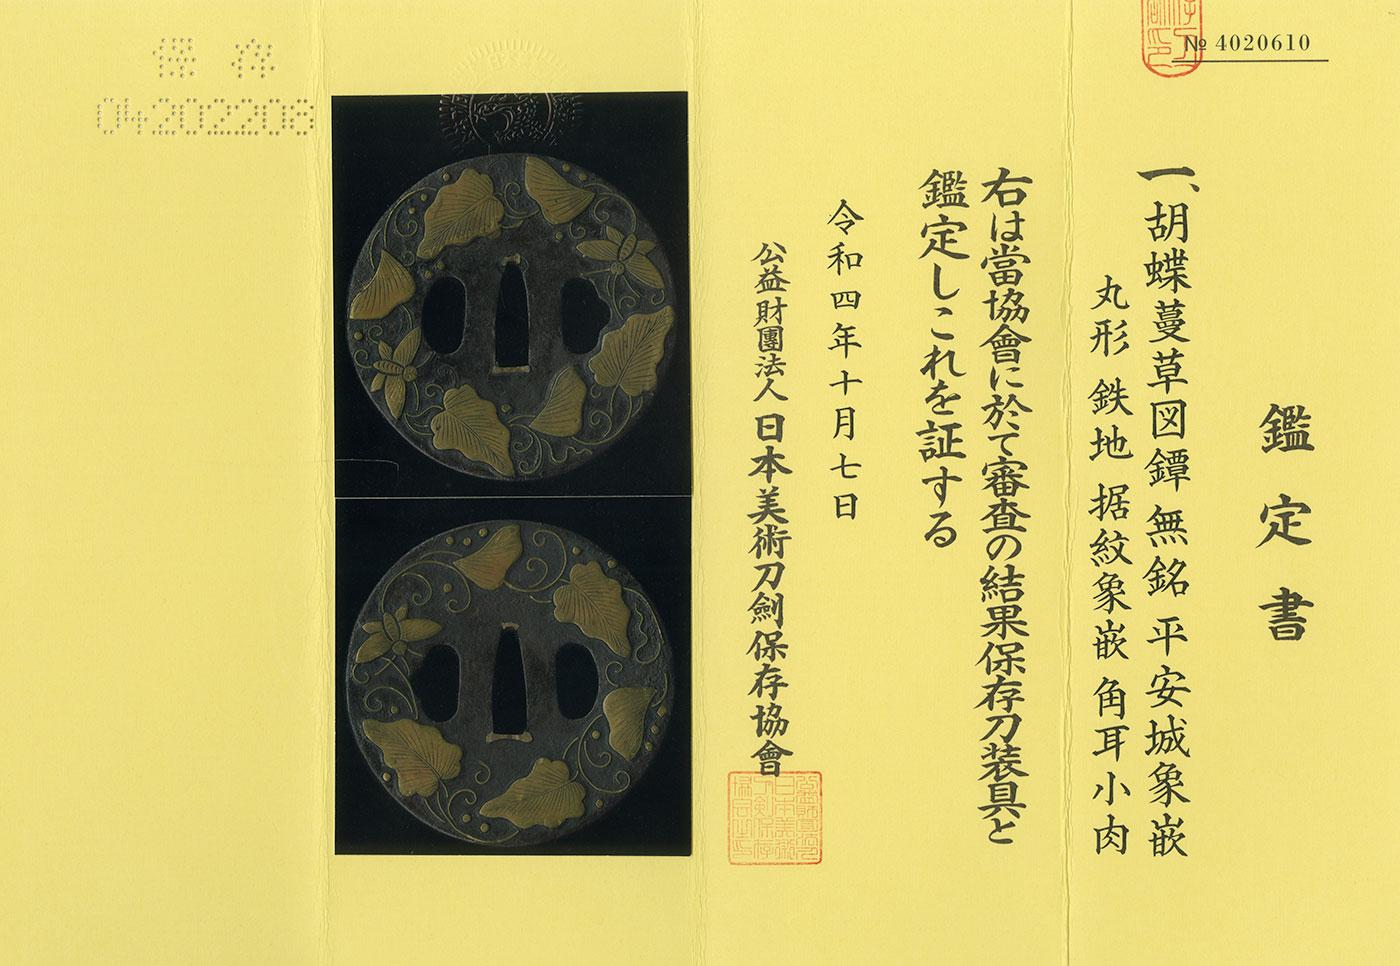 № 4020610
鑑定書
一、胡蝶蔓草図鐔 無銘 平安城象嵌
丸形 鉄地 据紋象嵌 角耳小肉
右は當協會に於て審査の結果保存刀装具と
鑑定しこれを証する
令和四年十月七日
公益財團法人 日本美術刀劍保存協會
保存
04202208